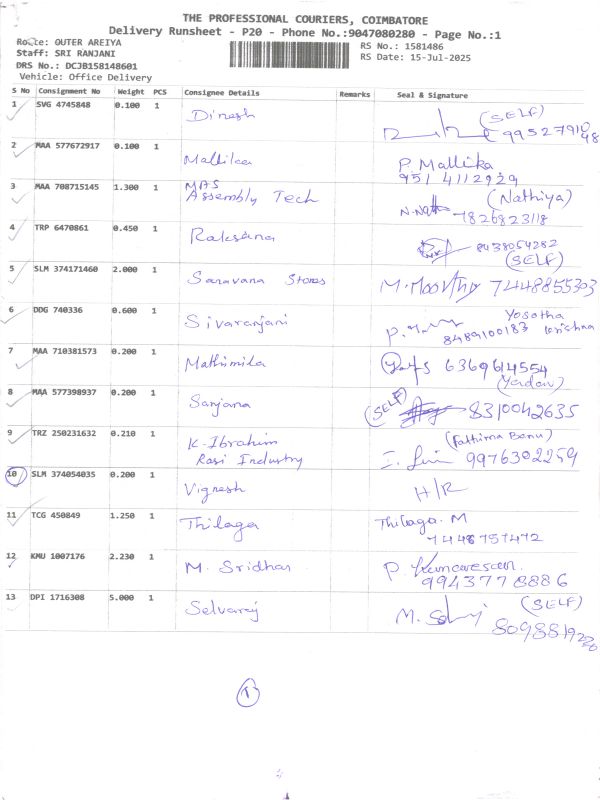 THE PROFESSIONAL COURIERS, COIMBATORE
Delivery Runsheet - P20 - Phone No.:9047080280 - Page No.:1
Route: OUTER AREIYA
RS No.: 1581486
Staff: SRI RANJANI
RS Date: 15-Jul-2025
DRS No.: DCJB158148601
Vehicle: Office Delivery
S No Consignment No Weight PCS Consignee Details Remarks Seal & Signature
1 SVG 4745848 0.100 1 Dinesh (SELF)
2 MAA 577672917 0.100 1 Mallika P. Mallika
951 4112929
3 MAA 708715145 1.300 1 MAS
Assembly Tech (Nathiya)
7826823118
4 TRP 6470861 0.450 1 Raksana 8438054282
(SELF)
5 SLM 374171460 2.000 1 Saravana Stores M. Moorthy 7448855303
6 DDG 740336 0.600 1 Sivaranjani Yosotha
8489100183 krishna
7 MAA 710381573 0.200 1 Mathimila 6369614554
(Yadav)
8 MAA 577398937 0.200 1 Sanjana (SELF) 8310042635
9 TRZ 250231632 0.210 1 K. Ibrahim (Fathima Banu)
Rasi Industry 9976302259
10 SLM 374054035 0.200 1 Vignesh H/R
11 TCG 450849 1.250 1 Thilaga Thilaga. M
7448757472
12 KMU 1007176 2.230 1 M. Sridhar P. Kumaresan
9943778886
13 DPI 1716308 5.000 1 Selvaraj (SELF)
1